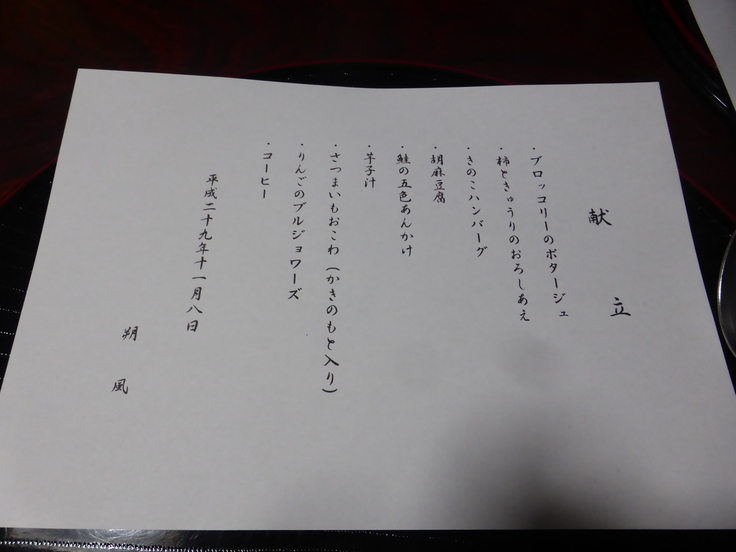 献立
・ブロッコリーのポタージュ
・柿ときゅうりのおろしあえ
・きのこハンバーグ
・胡麻豆腐
・鮭の五色あんかけ
・芋子汁
・さつまいもおこわ（かきのもと入り）
・りんごのブルジョワーズ
・コーヒー
平成二十九年十一月八日
朔風